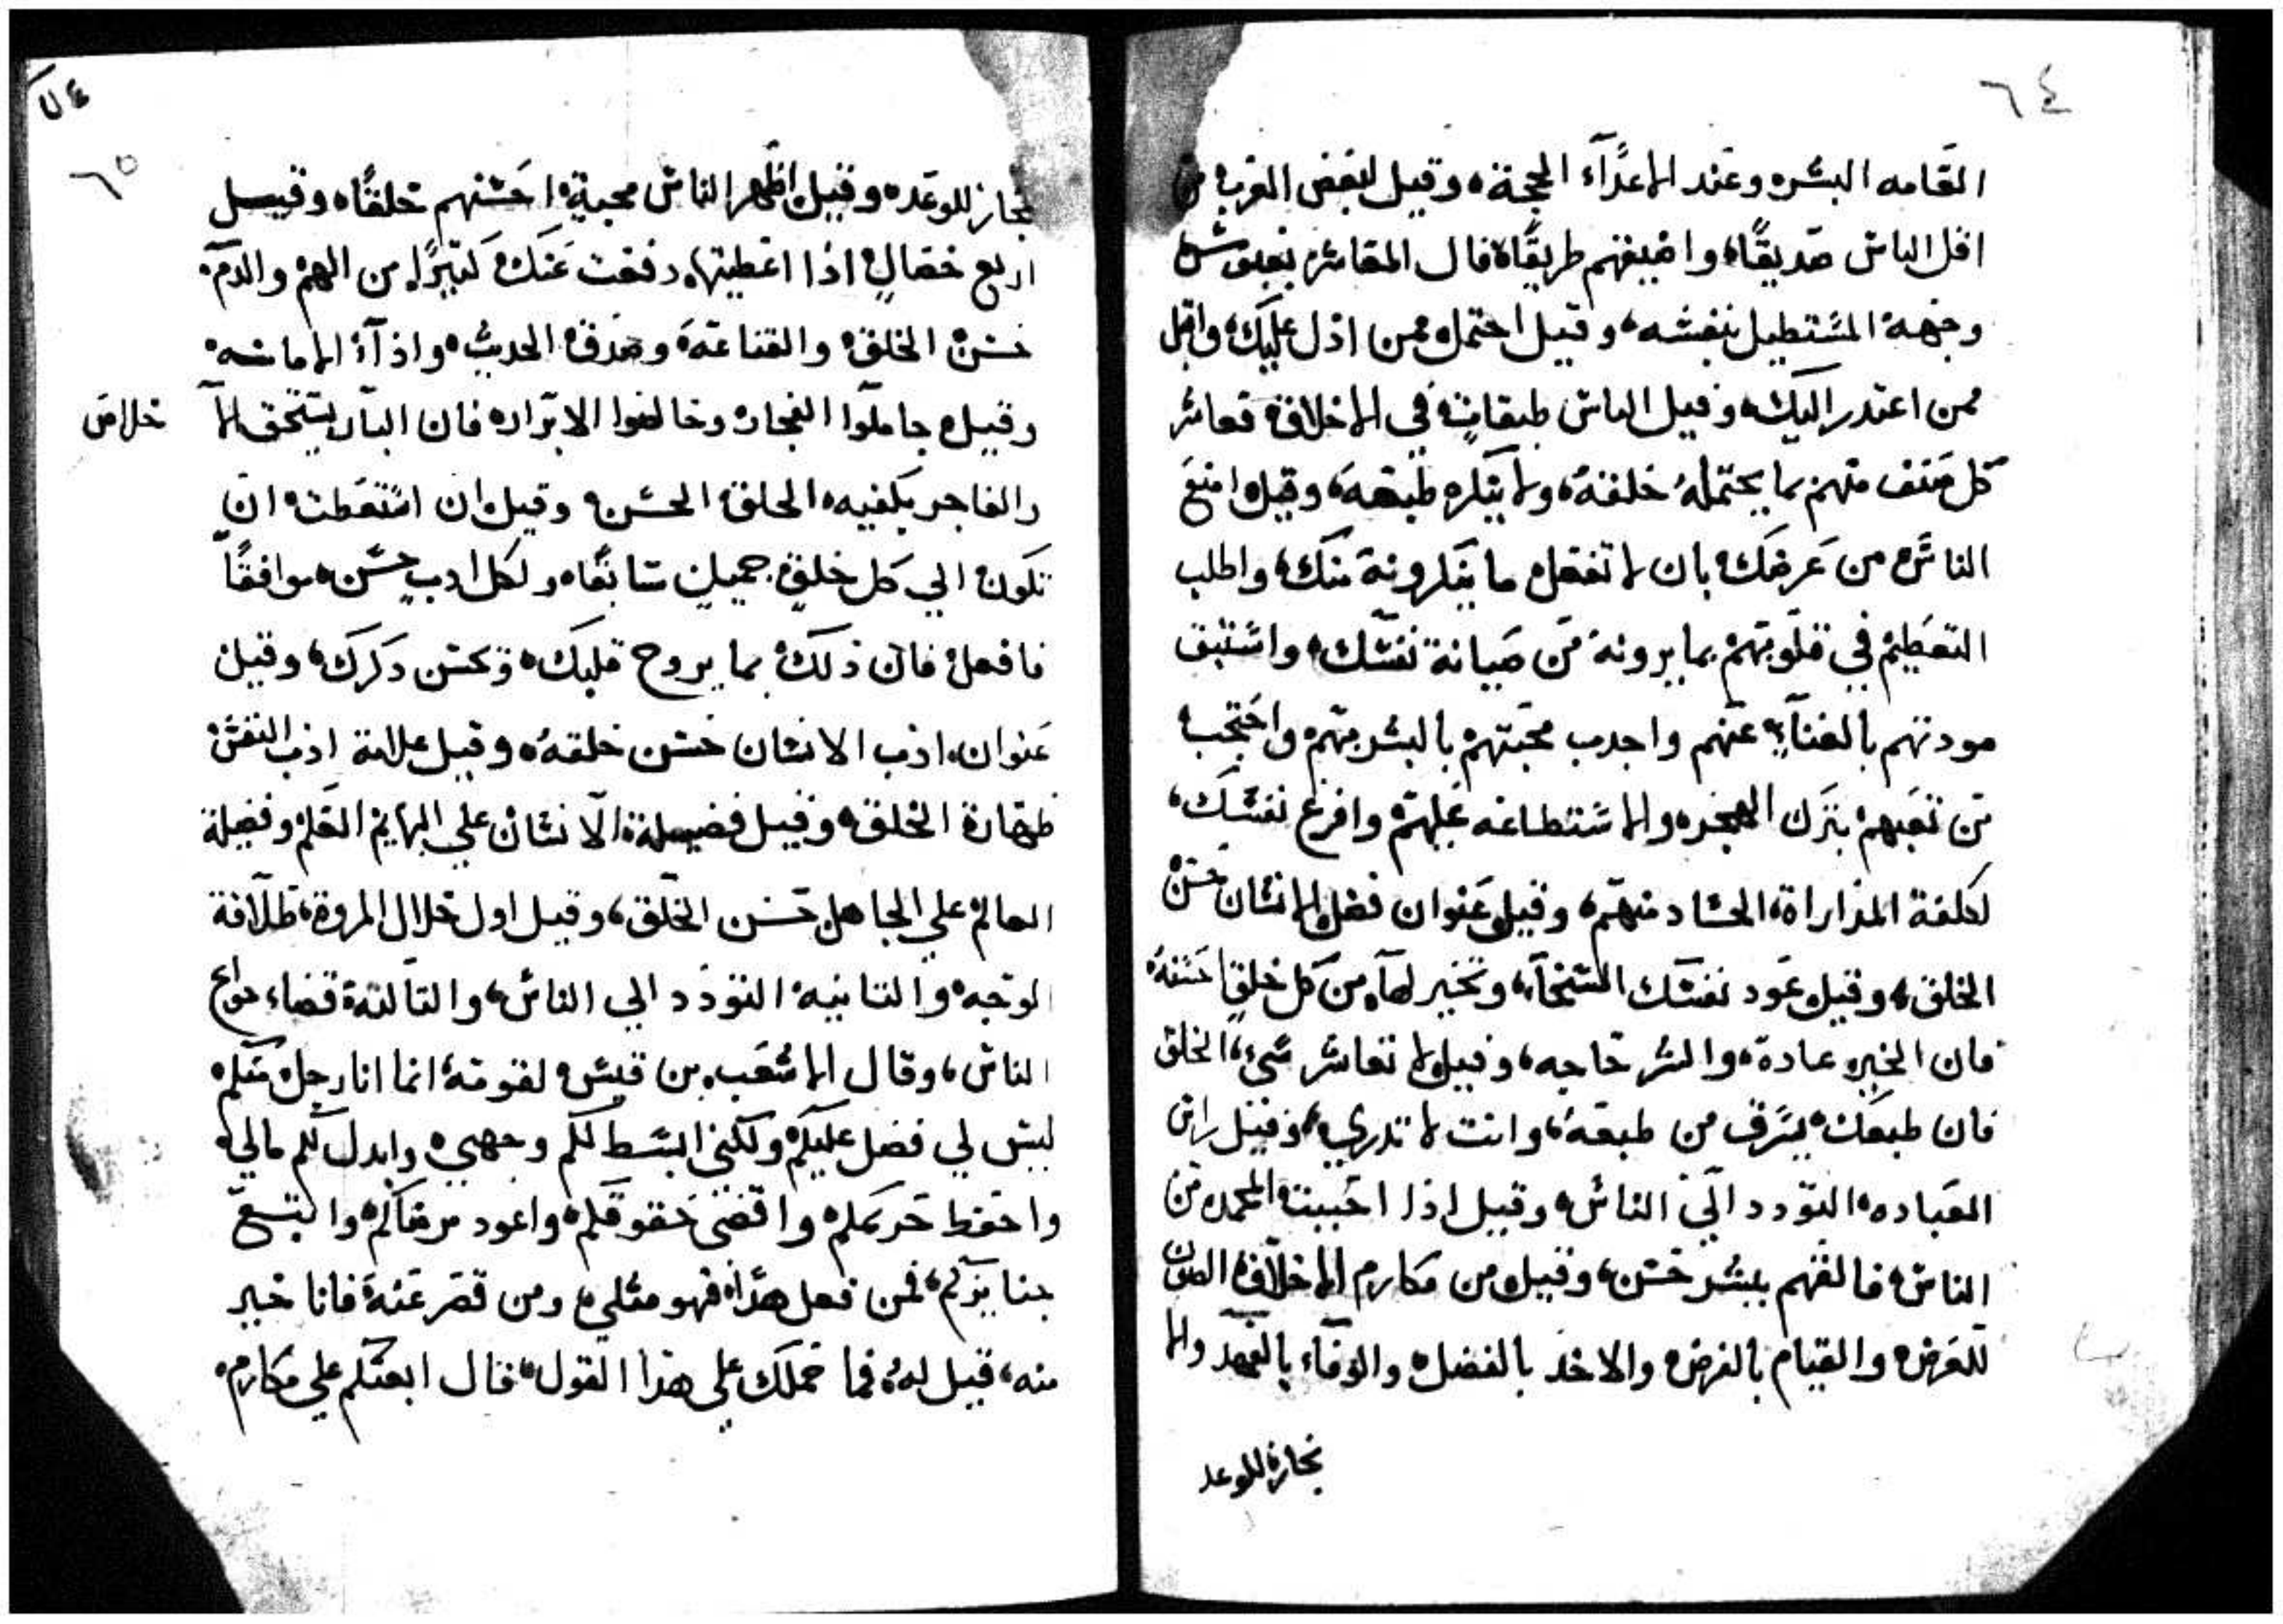 ٦٤
العامه البشر وعند الاعداء الحجة وقيل لبعض العرب من
اقل الناس صديقا واضيقهم طريقا قال المعاشر بعبوس
وجهه المستطيل بنفسه وقيل احتمل ممن ادل عليك واقبل
ممن اعتدر اليك وقيل الناس طبقات في الاخلاق فعاشر
كل صنف منهم بما يحتمله خلقه ولا ينكره طبعه وقيل امنع
الناس من عرضك بان لا تفعل ما ينكرونه منك واطلب
التعظيم في قلوبهم بما يرونه من صيانة نفسك واستبق
مودتهم بالغناء عنهم واجدب محبتهم بالبشر بهم واحتجب
من تعبهم بترك الهجر والاستطاعه عليهم وافرغ نفسك
لكلفة المداراة الحساد منهم وقيل عنوان فضل الانسان حسن
الخلق وقيل عود نفسك السخاء وتخير لها من كل خلق احسنه
فان الخير عادة والشر حاجه وقيل لا تعاشر سيء الخلق
فان طبعك يسرق من طبعه وانت لا تدري وقيل راس
العباده التودد الي الناس وقيل اذا احببت المحمده من
الناس فالقهم ببشر حسن وقيل من مكارم الاخلاق الصون
للعرض والقيام بالفرض والاخد بالفضل والوفاء بالعهد والا
نجاز للوعد
٦٥
نجاز للوعده وقيل اظهر الناس محبة احسنهم خلقا وقيل
اربع خصال اذا اعطيتها دفعت عنك كثيرا من الهم والدم
حسن الخلق والقناعة وصدق الحديث واداء الامانه
وقيل جاملوا الفجار وخالصوا الابرار فان البار يستحق الا
خلاص
والفاجر يكفيه الخلق الحسن وقيل ان استطعت ان
تكون الي كل خلق جميل سابقا ولكل ادب حسن موافقا
فافعل فان ذلك بما يروح قلبك ويحسن دكرك وقيل
عنوان ادب الانسان حسن خلقه وقيل علامة ادب النفس
طهارة الخلق وقيل فضيلة الانسان علي البهايم العلم وفضيلة
العالم علي الجاهل حسن الخلق وقيل اول خلال المروة طلاقة
الوجه والثانيه التودد الي الناس والثالثة قضاء حوائج
الناس وقال الاشعب بن قيس لقومه انما انا رجل منكم
ليس لي فضل عليكم ولكني ابسط لكم وجهي وابدل لكم مالي
واحفظ حريمكم واقضي حقوقكم واعود مرضاكم واتبع
جنايزكم فمن فعل هذا فهو مثلي ومن قصر عنه فانا خير
منه قيل له فما حملك علي هذا القول قال ابعثكم علي مكارم